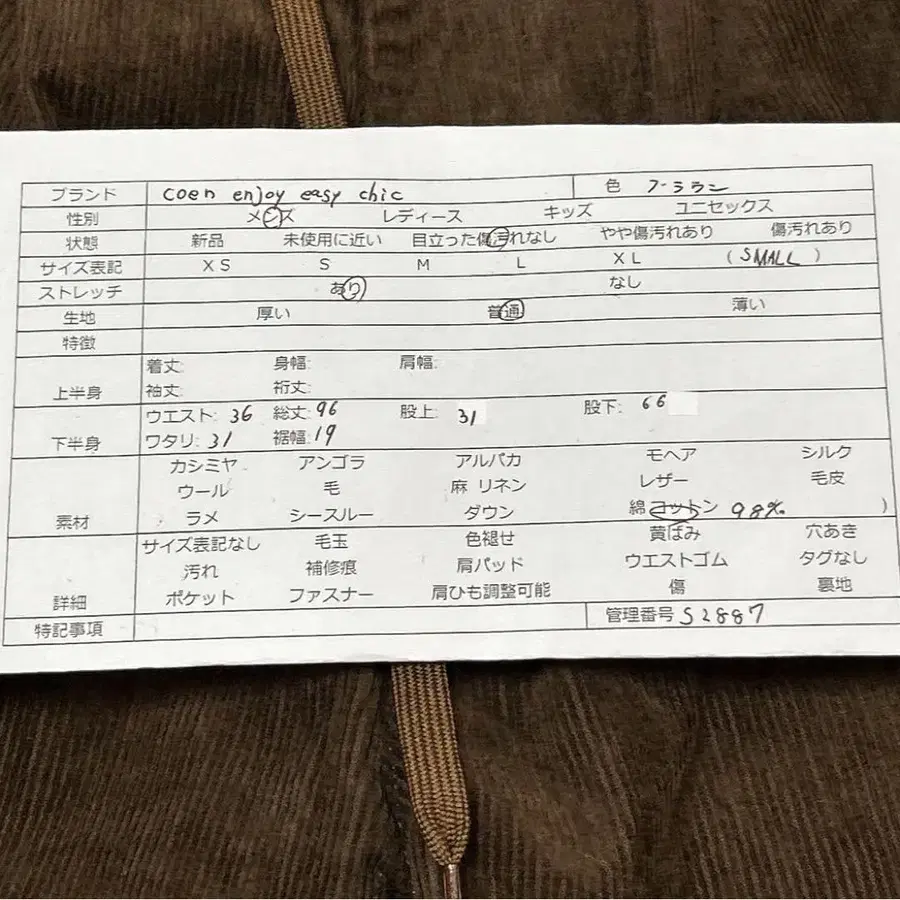 ブランド coen enjoy easy chic 色 ブラウン
性別 メンズ レディース キッズ ユニセックス
状態 新品 未使用に近い 目立った傷汚れなし やや傷汚れあり 傷汚れあり
サイズ表記 XS S M L XL (SMALL)
ストレッチ あり なし
生地 厚い 普通 薄い
特徴
上半身 着丈: 身幅: 肩幅:
袖丈: 裄丈:
下半身 ウエスト: 36 総丈: 96 股上: 31 股下: 66
ワタリ: 31 裾幅: 19
素材 カシミヤ アンゴラ アルパカ モヘア シルク
ウール 毛 麻 リネン レザー 毛皮
ラメ シースルー ダウン 綿 コットン 98% )
詳細 サイズ表記なし 毛玉 色褪せ 黄ばみ 穴あき
汚れ 補修痕 肩パッド ウエストゴム タグなし
ポケット ファスナー 肩ひも調整可能 傷 裏地
特記事項 管理番号 S2887